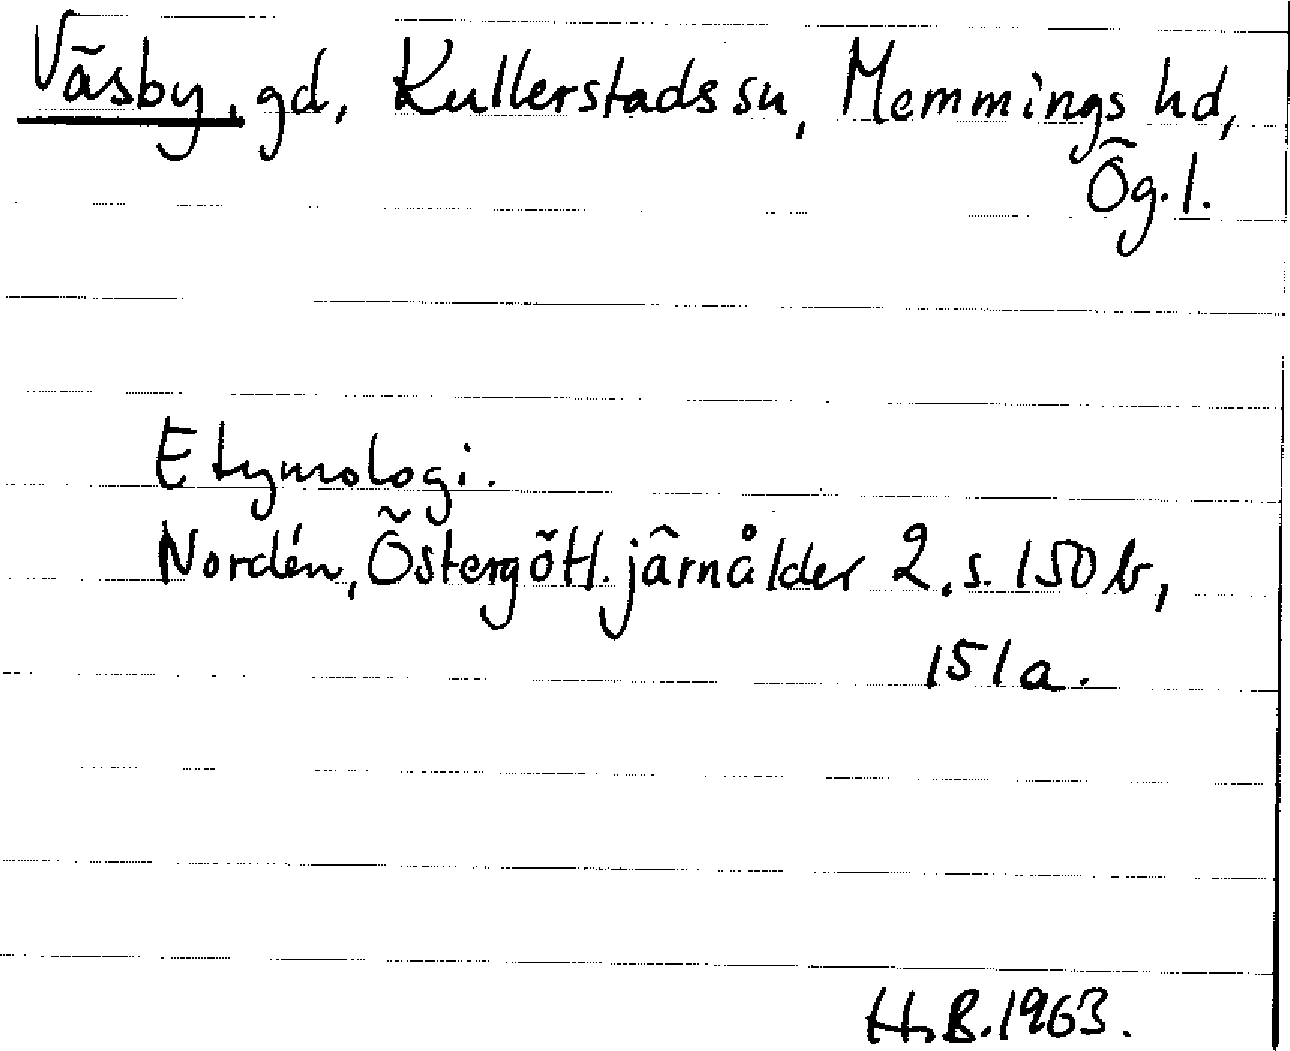 Väsby, gd, Kullerstads sn, Memmings hd,
Ög. l.
Etymologi.
Nordén, Östergötl. järnålder 2. s. 150 b,
151 a.
H.B. 1963.